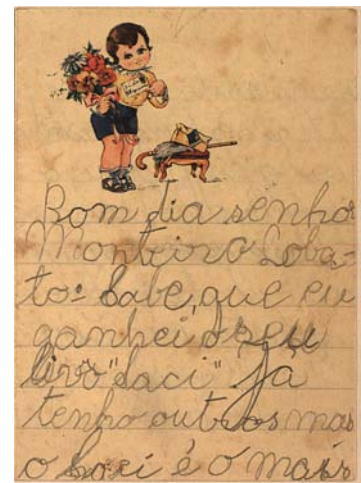 Bom dia senhor
Monteiro Loba-
to: Sabe, que eu
ganhei o seu
livro "Saci" já
tenho outros mas
o Saci é o mais